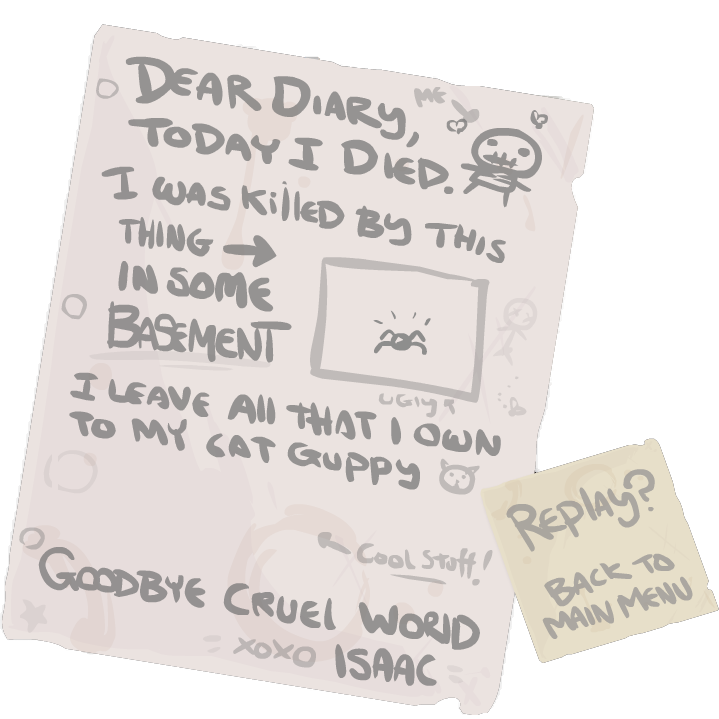 DEAR DIARY,
ME
TODAY I DIED.
I WAS KillED BY THIS
THING →
IN SOME
BASEMENT
UGLY
I LEAVE All THAT I OWN
TO MY CAT GUPPY
COOL STUFF!
GOODBYE CRUEL WORLD
XOXO ISAAC
REPLAY?
BACK TO
MAIN MENU